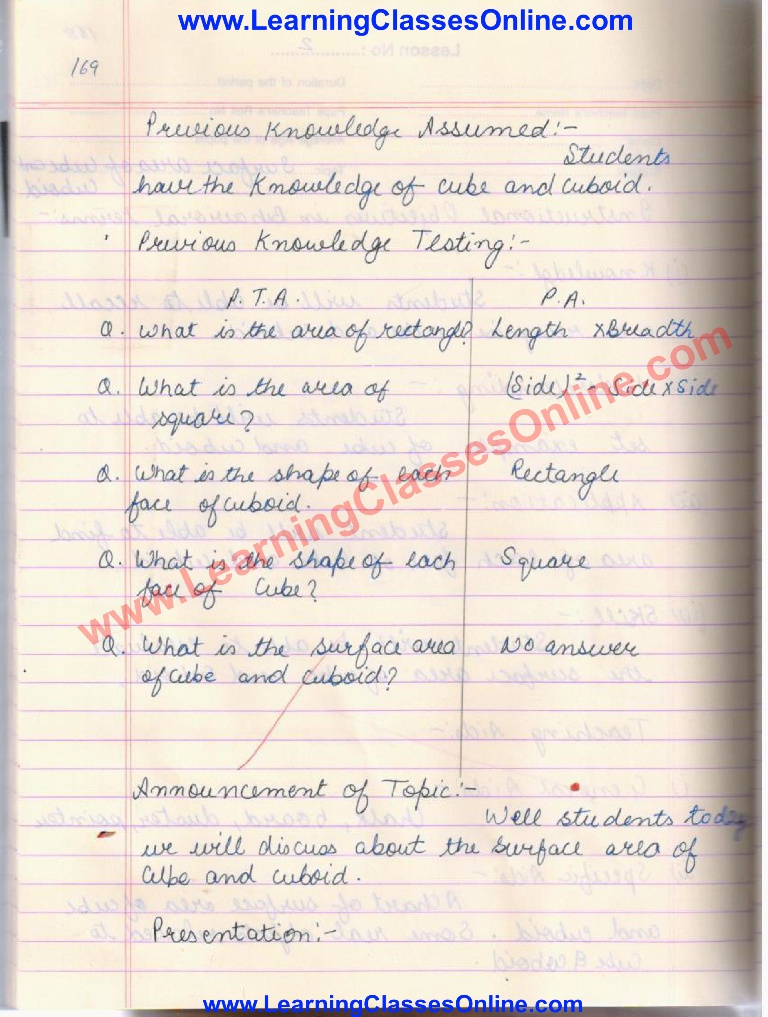 www.LearningClassesOnline.com
Lesson No :........2........
169
Previous Knowledge Assumed:-
Students
have the Knowledge of cube and cuboid.
Previous Knowledge Testing:-
P.T.A. P.A.
Q. What is the area of rectangle? Length x Breadth
Q. What is the area of (Side)² - Side x Side
square?
Q. What is the shape of each Rectangle
face of cuboid.
Q. What is the shape of each Square
face of Cube?
Q. What is the surface area No answer
of cube and cuboid?
www.LearningClassesOnline.com
Announcement of Topic:-
Well students today
we will discuss about the surface area of
cube and cuboid.
Presentation:-
www.LearningClassesOnline.com